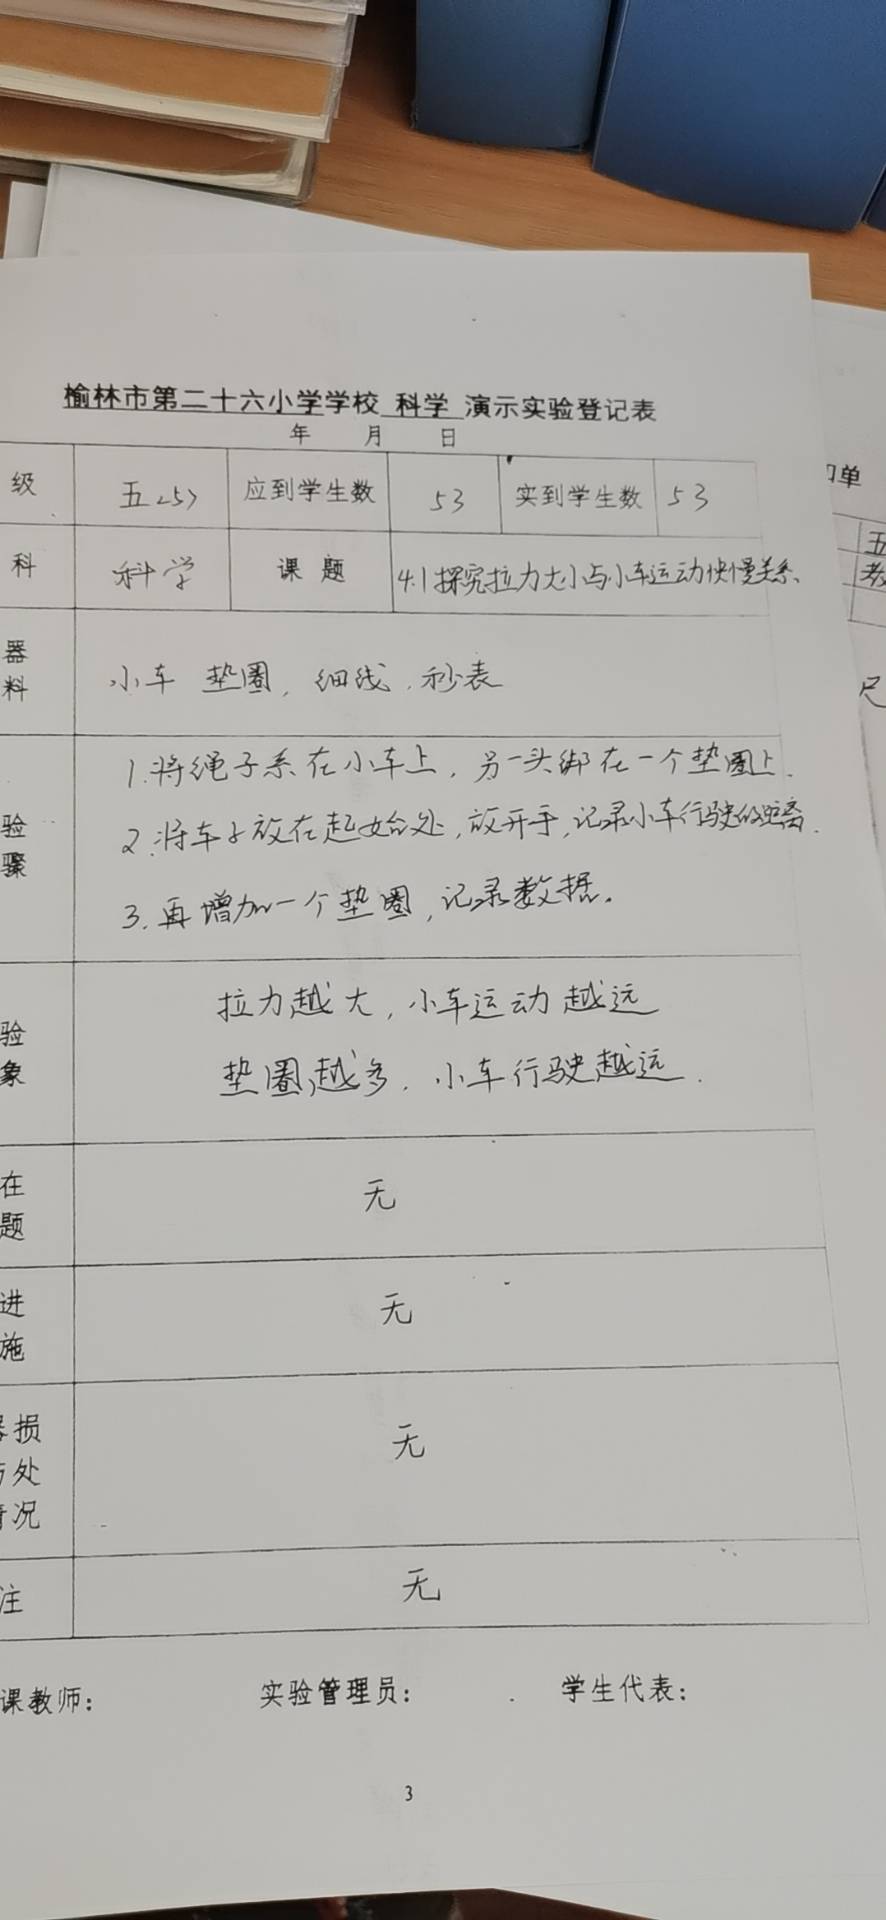 榆林市第二十六小学学校 科学 演示实验登记表
年 月 日
级 五<5> 应到学生数 53 实到学生数 53
科 科学 课题 4.1探究拉力大小与小车运动快慢关系.
器
料
小车 垫圈, 细线, 秒表
验
骤
1.将绳子系在小车上, 另一头绑在一个垫圈上.
2.将车子放在起始处, 放开手, 记录小车行驶的距离.
3.再增加一个垫圈, 记录数据。
验
象
拉力越大, 小车运动越远
垫圈越多, 小车行驶越远.
在
题
无
进
施
无
损
处
情况
无
注 无
课教师: 实验管理员: 学生代表:
3
单
五
教
尺